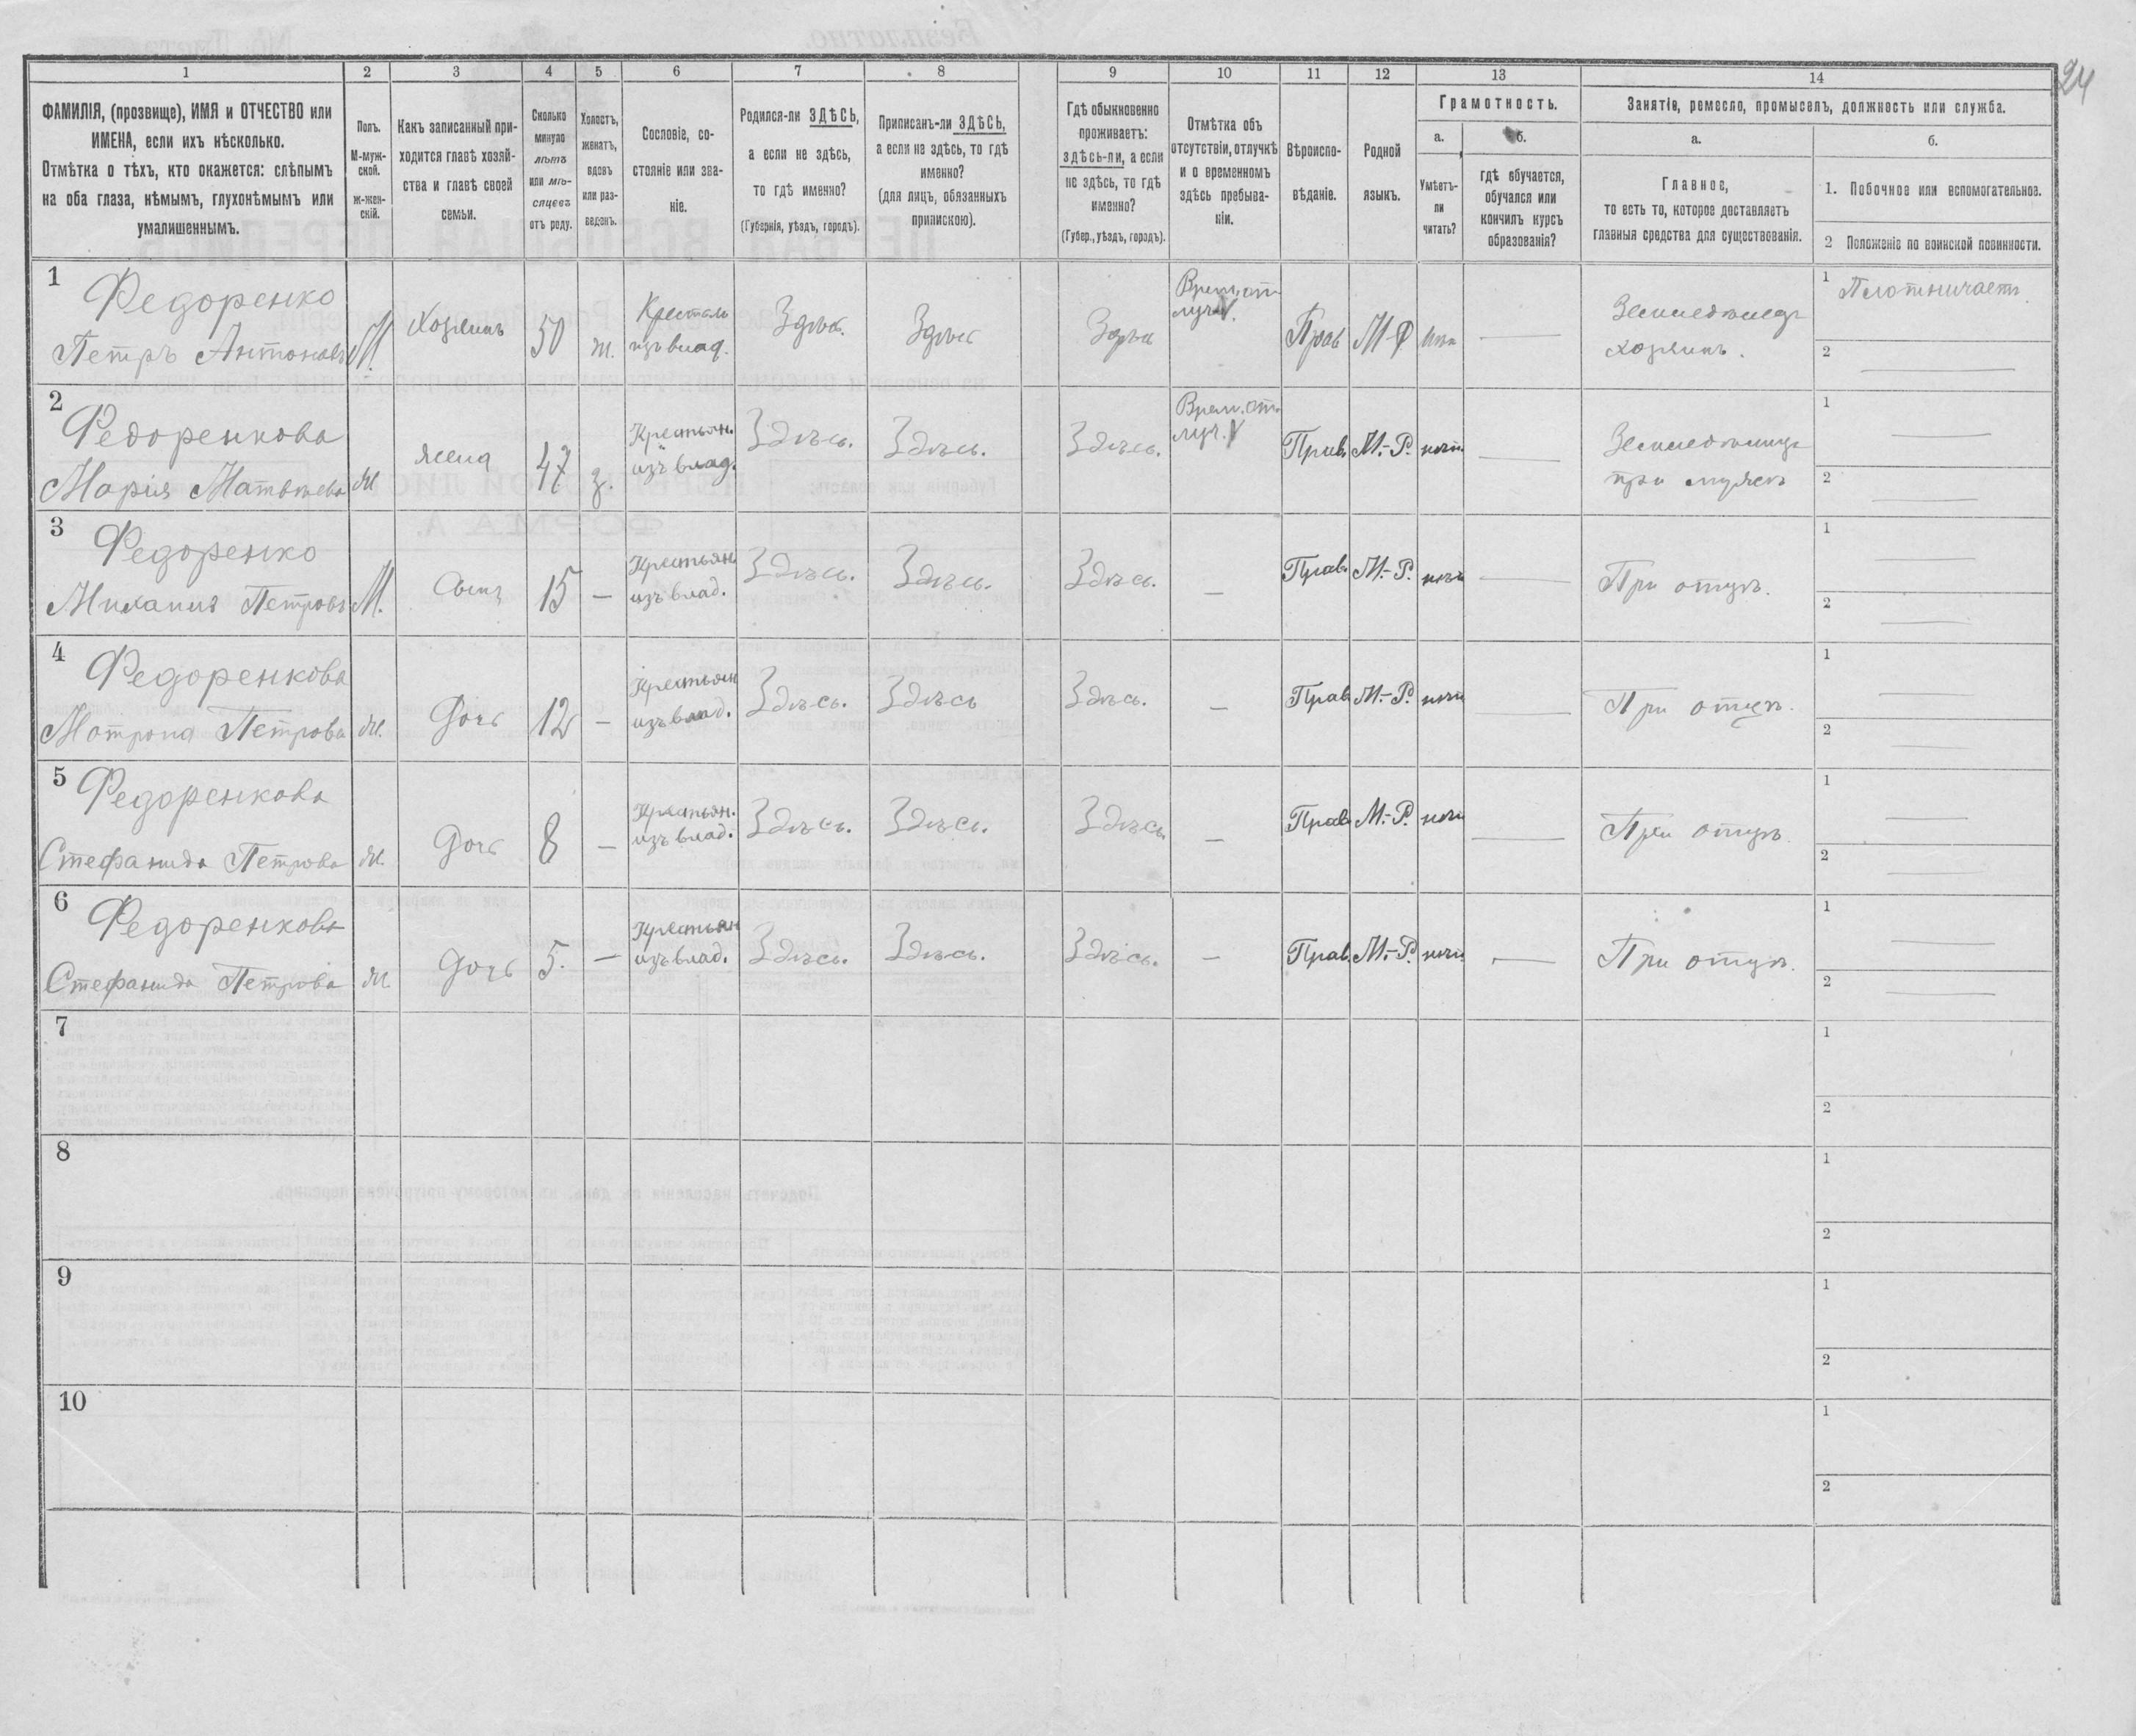 24
1 2 3 4 5 6 7 8 9 10 11 12 13 14
ФАМИЛІЯ, (прозвище), ИМЯ и ОТЧЕСТВО или
ИМЕНА, если ихъ нѣсколько.
Отмѣтка о тѣхъ, кто окажется: слѣпымъ
на оба глаза, нѣмымъ, глухонѣмымъ или
умалишеннымъ.
Полъ.
М-муж-
ской.
Ж-жен-
скій.
Какъ записанный при-
ходится главѣ хозяй-
ства и главѣ своей
семьи.
Сколько
минуло
лѣтъ
или мѣ-
сяцевъ
отъ роду.
Холостъ,
женатъ,
вдовъ
или раз-
веденъ.
Сословіе, со-
стояніе или зва-
ніе.
Родился-ли ЗДѢСЬ,
а если не здѣсь,
то гдѣ именно?
(Губернія, уѣздъ, городъ).
Приписанъ-ли ЗДѢСЬ,
а если не здѣсь, то гдѣ
именно?
(для лицъ, обязанныхъ
припискою).
Гдѣ обыкновенно
проживаетъ:
здѣсь-ли, а если
не здѣсь, то гдѣ
именно?
(Губер., уѣздъ, городъ).
Отмѣтка объ
отсутствіи, отлучкѣ
и о временномъ
здѣсь пребыва-
ніи.
Вѣроиспо-
вѣданіе.
Родной
языкъ.
Грамотность.
а.
Умѣетъ-
ли
читать?
б.
гдѣ обучается,
обучался или
кончилъ курсъ
образованія?
Занятіе, ремесло, промыселъ, должность или служба.
а.
Главное,
то есть то, которое доставляетъ
главныя средства для существованія.
б.
1. Побочное или вспомогательное.
2 Положеніе по воинской повинности.
1
Федоренко
Петръ Антоновъ
М.
Хозяинъ
50
ж.
изъ влад.
Здѣсь.
Здѣсь
Здѣсь
Прав
М-Р
нѣтъ
хозяинъ.
1 Плотничаетъ.
2
2
Федоренкова
Марія Матвѣева
Ж
жена
47
з.
Крестьян.
изъ влад.
Здѣсь.
Здѣсь.
Здѣсь.
Врем. от-
луч. V
Прав.
М.-Р.
нѣтъ
при мужѣ
1
2
3
Федоренко
Михаилъ Петровъ
М.
Сынъ
15
—
Крестьян.
изъ влад.
Здѣсь.
Здѣсь.
Здѣсь.
—
Прав.
М.-Р.
нѣтъ
При отцѣ.
1
2
4
Федоренкова
Матрона Петрова
Ж.
Дочь
12
—
Крестьян
изъ влад.
Здѣсь.
Здѣсь
Здѣсь.
—
Прав
М.-Р.
нѣтъ
При отцѣ.
1
2
5
Федоренкова
Стефанида Петрова
Ж.
Дочь
8
—
Крестьян.
изъ влад.
Здѣсь.
Здѣсь.
Здѣсь
—
Прав
М.-Р.
нѣтъ
При отцѣ.
1
2
6
Федоренкова
Стефанида Петрова
Ж
Дочь
5.
—
Крестьян
изъ влад.
Здѣсь.
Здѣсь.
Здѣсь.
—
Прав.
М.-Р.
нѣтъ
—
При отцѣ.
1
2
7
1
2
8
1
2
9
1
2
10
1
2